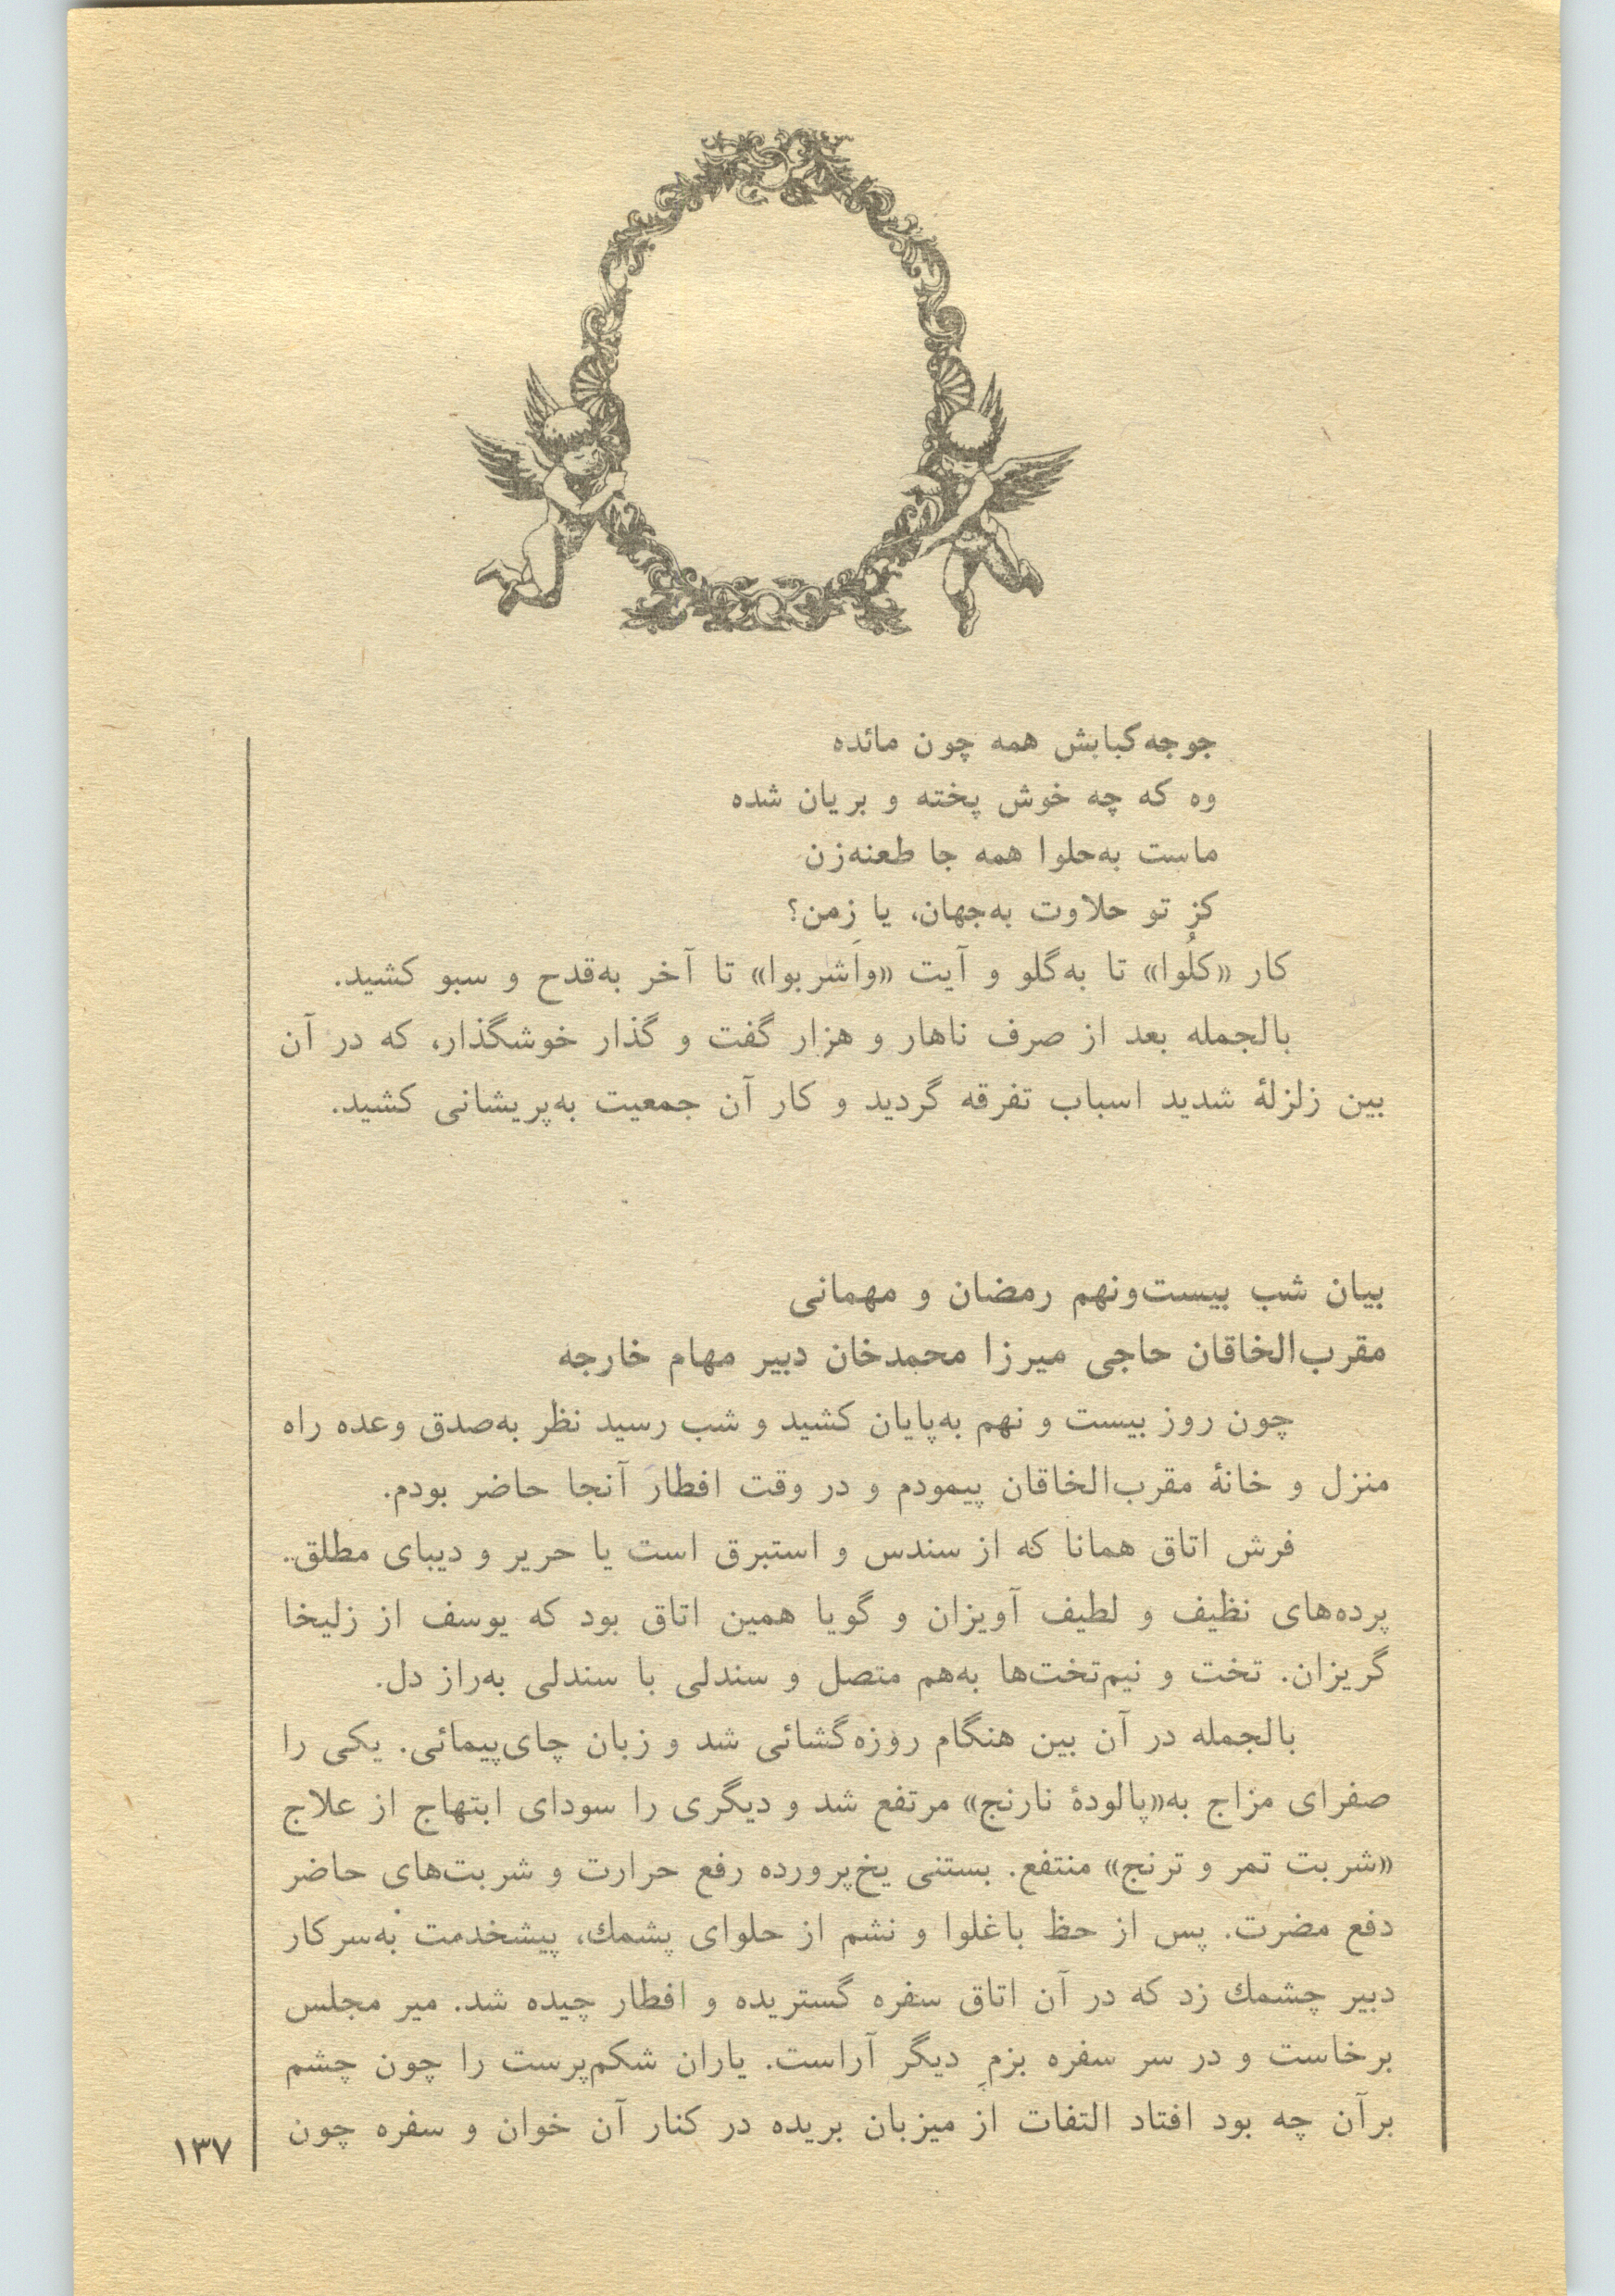 جوجه‌کبابش همه چون مائده
وه که چه خوش پخته و بریان شده
ماست به‌حلوا همه جا طعنه‌زن
کز تو حلاوت به‌جهان، یا زِمن؟
کار «کلُوا» تا به‌گلو و آیت «واَشربوا» تا آخر به‌قدح و سبو کشید.
بالجمله بعد از صرف ناهار و هزار گفت و گذار خوشگذار، که در آن
بین زلزلهٔ شدید اسباب تفرقه گردید و کار آن جمعیت به‌پریشانی کشید.
بیان شب بیست‌ونهم رمضان و مهمانی
مقرب‌الخاقان حاجی میرزا محمدخان دبیر مهام خارجه
چون روز بیست و نهم به‌پایان کشید و شب رسید نظر به‌صدق وعده راه
منزل و خانهٔ مقرب‌الخاقان پیمودم و در وقت افطار آنجا حاضر بودم.
فرش اتاق همانا که از سندس و استبرق است یا حریر و دیبای مطلق.
پرده‌های نظیف و لطیف آویزان و گویا همین اتاق بود که یوسف از زلیخا
گریزان. تخت و نیم‌تخت‌ها به‌هم متصل و سندلی با سندلی به‌راز دل.
بالجمله در آن بین هنگام روزه‌گشائی شد و زبان چای‌پیمائی. یکی را
صفرای مزاج به«پالودهٔ نارنج» مرتفع شد و دیگری را سودای ابتهاج از علاج
«شربت تمر و ترنج» منتفع. بستنی یخ‌پرورده رفع حرارت و شربت‌های حاضر
دفع مضرت. پس از حظ باغلوا و نشم از حلوای پشمك، پیشخدمت به‌سرکار
دبیر چشمك زد که در آن اتاق سفره گستریده و افطار چیده شد. میر مجلس
برخاست و در سر سفره بزمِ دیگر آراست. یاران شکم‌پرست را چون چشم
برآن چه بود افتاد التفات از میزبان بریده در کنار آن خوان و سفره چون
۱۳۷